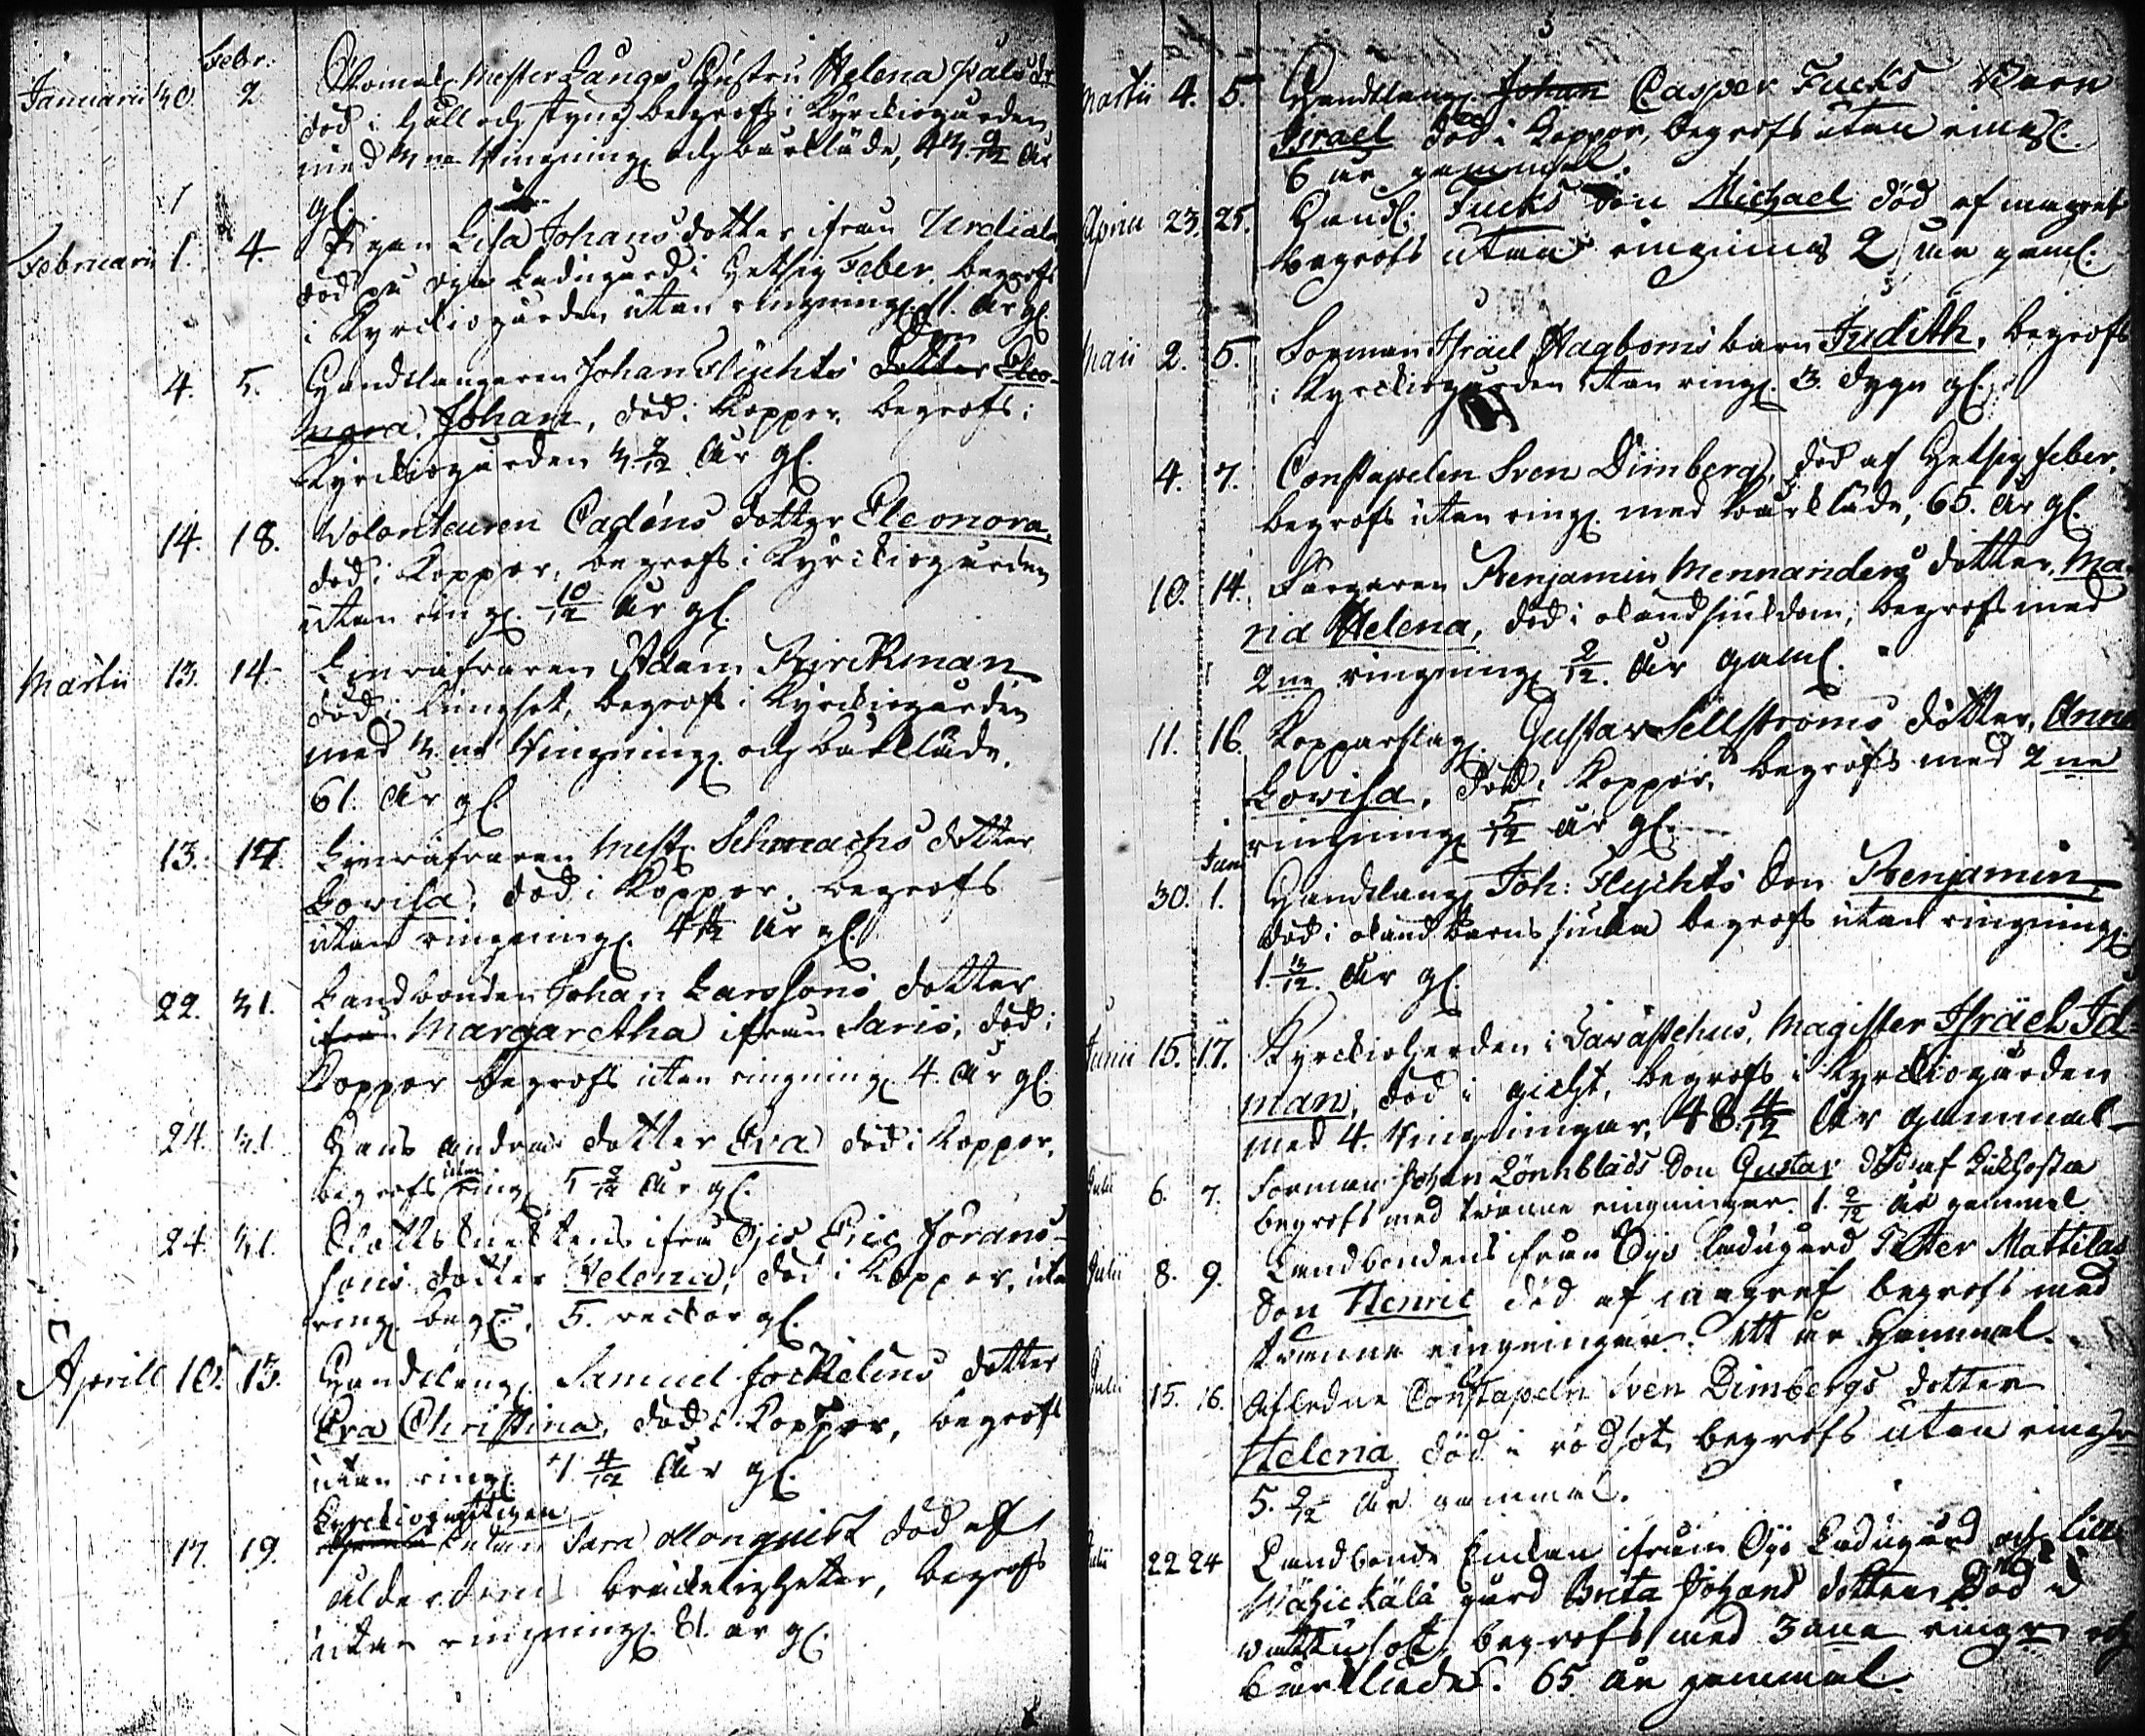 Febr.
Januarii 30. 2. Skomak. Mester Langs Hustru Helena Palsdr
död i håll och styng, begrofs i Kyrckiogården
med 3 ne Ringning och bårkläde, 43 9/12 År
gl.
Februarii 1. 4. Pigan Lisa Johansdotter ifrån Urdiala
död på Öyis Ladugård i Hetsig Feber, begrofs
i Kyrckiogården utan ringning. 51. År gl.
Son
4. 5. Handtlangaren Johan Flychts dotter Eleo-
nora. Johan, död i Koppor, begrofs i
Kyrckiogården 3 2/12 År gl.
14. 18. Volonteuren Cadéns dotter Eleonora,
död i Koppor, begrofs i Kyrckiogården
utan ring. 10/12 År gl.
Martii 13. 14. Linväfvaren Adam Birckman
död i Lungsot, begrofs i Kyrckiogården
med 3 ne Ringning och bårkläde.
61. År gl.
13. 14. Linväfvaren Mest. Schmachs dotter
Lovisa, död i Koppor, begrofs
utan ringning. År gl.
22. 31. Landbonden Johan Larssons dotter
ifrån Margaretha ifrån Saris, död i
Koppor begrofs utan ringning 4. År gl.
24. 31. Hans Anders dotter Eva död i Koppor,
utan
begrofs ring. 5 2/12 År gl.
24. 31. ifrån Öjis Eric Jörans-
sons dotter Helena, död i Koppor, utan
ring. begr. 5. veckor gl.
Aprill 10. 13. Handtlang. Samuel Jockelins dotter
Eva Christina, död i Koppor, begrofs
utan ring. 1 4/12 År gl.
Kyrckiofattigen
17. 19. Enkan Sara Monquist död af
ålderdoms bräckligheter, begrofs
utan ringning. 81. år gl.
3
Martii 4. 5. Handtlang. Johan Casper Fucks Barn
Israel död i Koppor, begrofs utan ringn.
6 år gammal.
Aprill 23. 25. Handl. Fucks Son Michael död af magref
begrofs utan ringning 2 år gaml.
Maii 2. 5. Sorman Israel Hagboms barn Judith, begrofs
i Kyrckiogården utan ring. 3. dygn gl.
4. 7. Constapelen Sven Dimberg, död af Hetsig feber,
begrofs utan ring. med bårkläde, 65. År gl.
10. 14. Färgaren Benjamin Mennanders dotter, Ma-
ria Helena, död i okändsiukdom, begrofs med
2 ne ringning 2/12. År gaml.
11. 16. Kopparslag. Gustav Sellströms dotter, Anna
Lovisa, död i Koppor, begrofs med 2 ne
ringning 5/12 År gl.
Junii
30. 1. Handtlang. Joh: Flychts Son Benjamin,
död i okänd barnsjuka begrofs utan ringning.
1. 3/12. År gl.
Junii 15. 17. Kyrckioherden i Tavastehus, Magister Israel Id-
man, död i gickt, begrofs i Kyrckiogården
med 4. Ringningar, 48. 4/12 År gammal
Julii 6. 7. Forman Johan Lönnblads Son Gustav död af Kikhosta
begrofs med tvenne ringningar. 1. 2/12 år gammal
Julii 8. 9. Landbondens ifrån Öyis Ladugård Petter Mattilas
Son Henric död af magref begrofs med
tvenne ringningar. Ett år gammal.
Julii 15. 16. Afledne Constapeln Sven Dimbergs dotter
Helena död i rödsot, begrofs utan ringn
5. 2/12 år gammal.
Julii 22 24 Landbonde Enckan ifrån Öyis Ladugård och lilla
gård Brita Johans dotter död i
vattusot, begrofs med 3 ringn och
bårkläde. 65 år gammal.